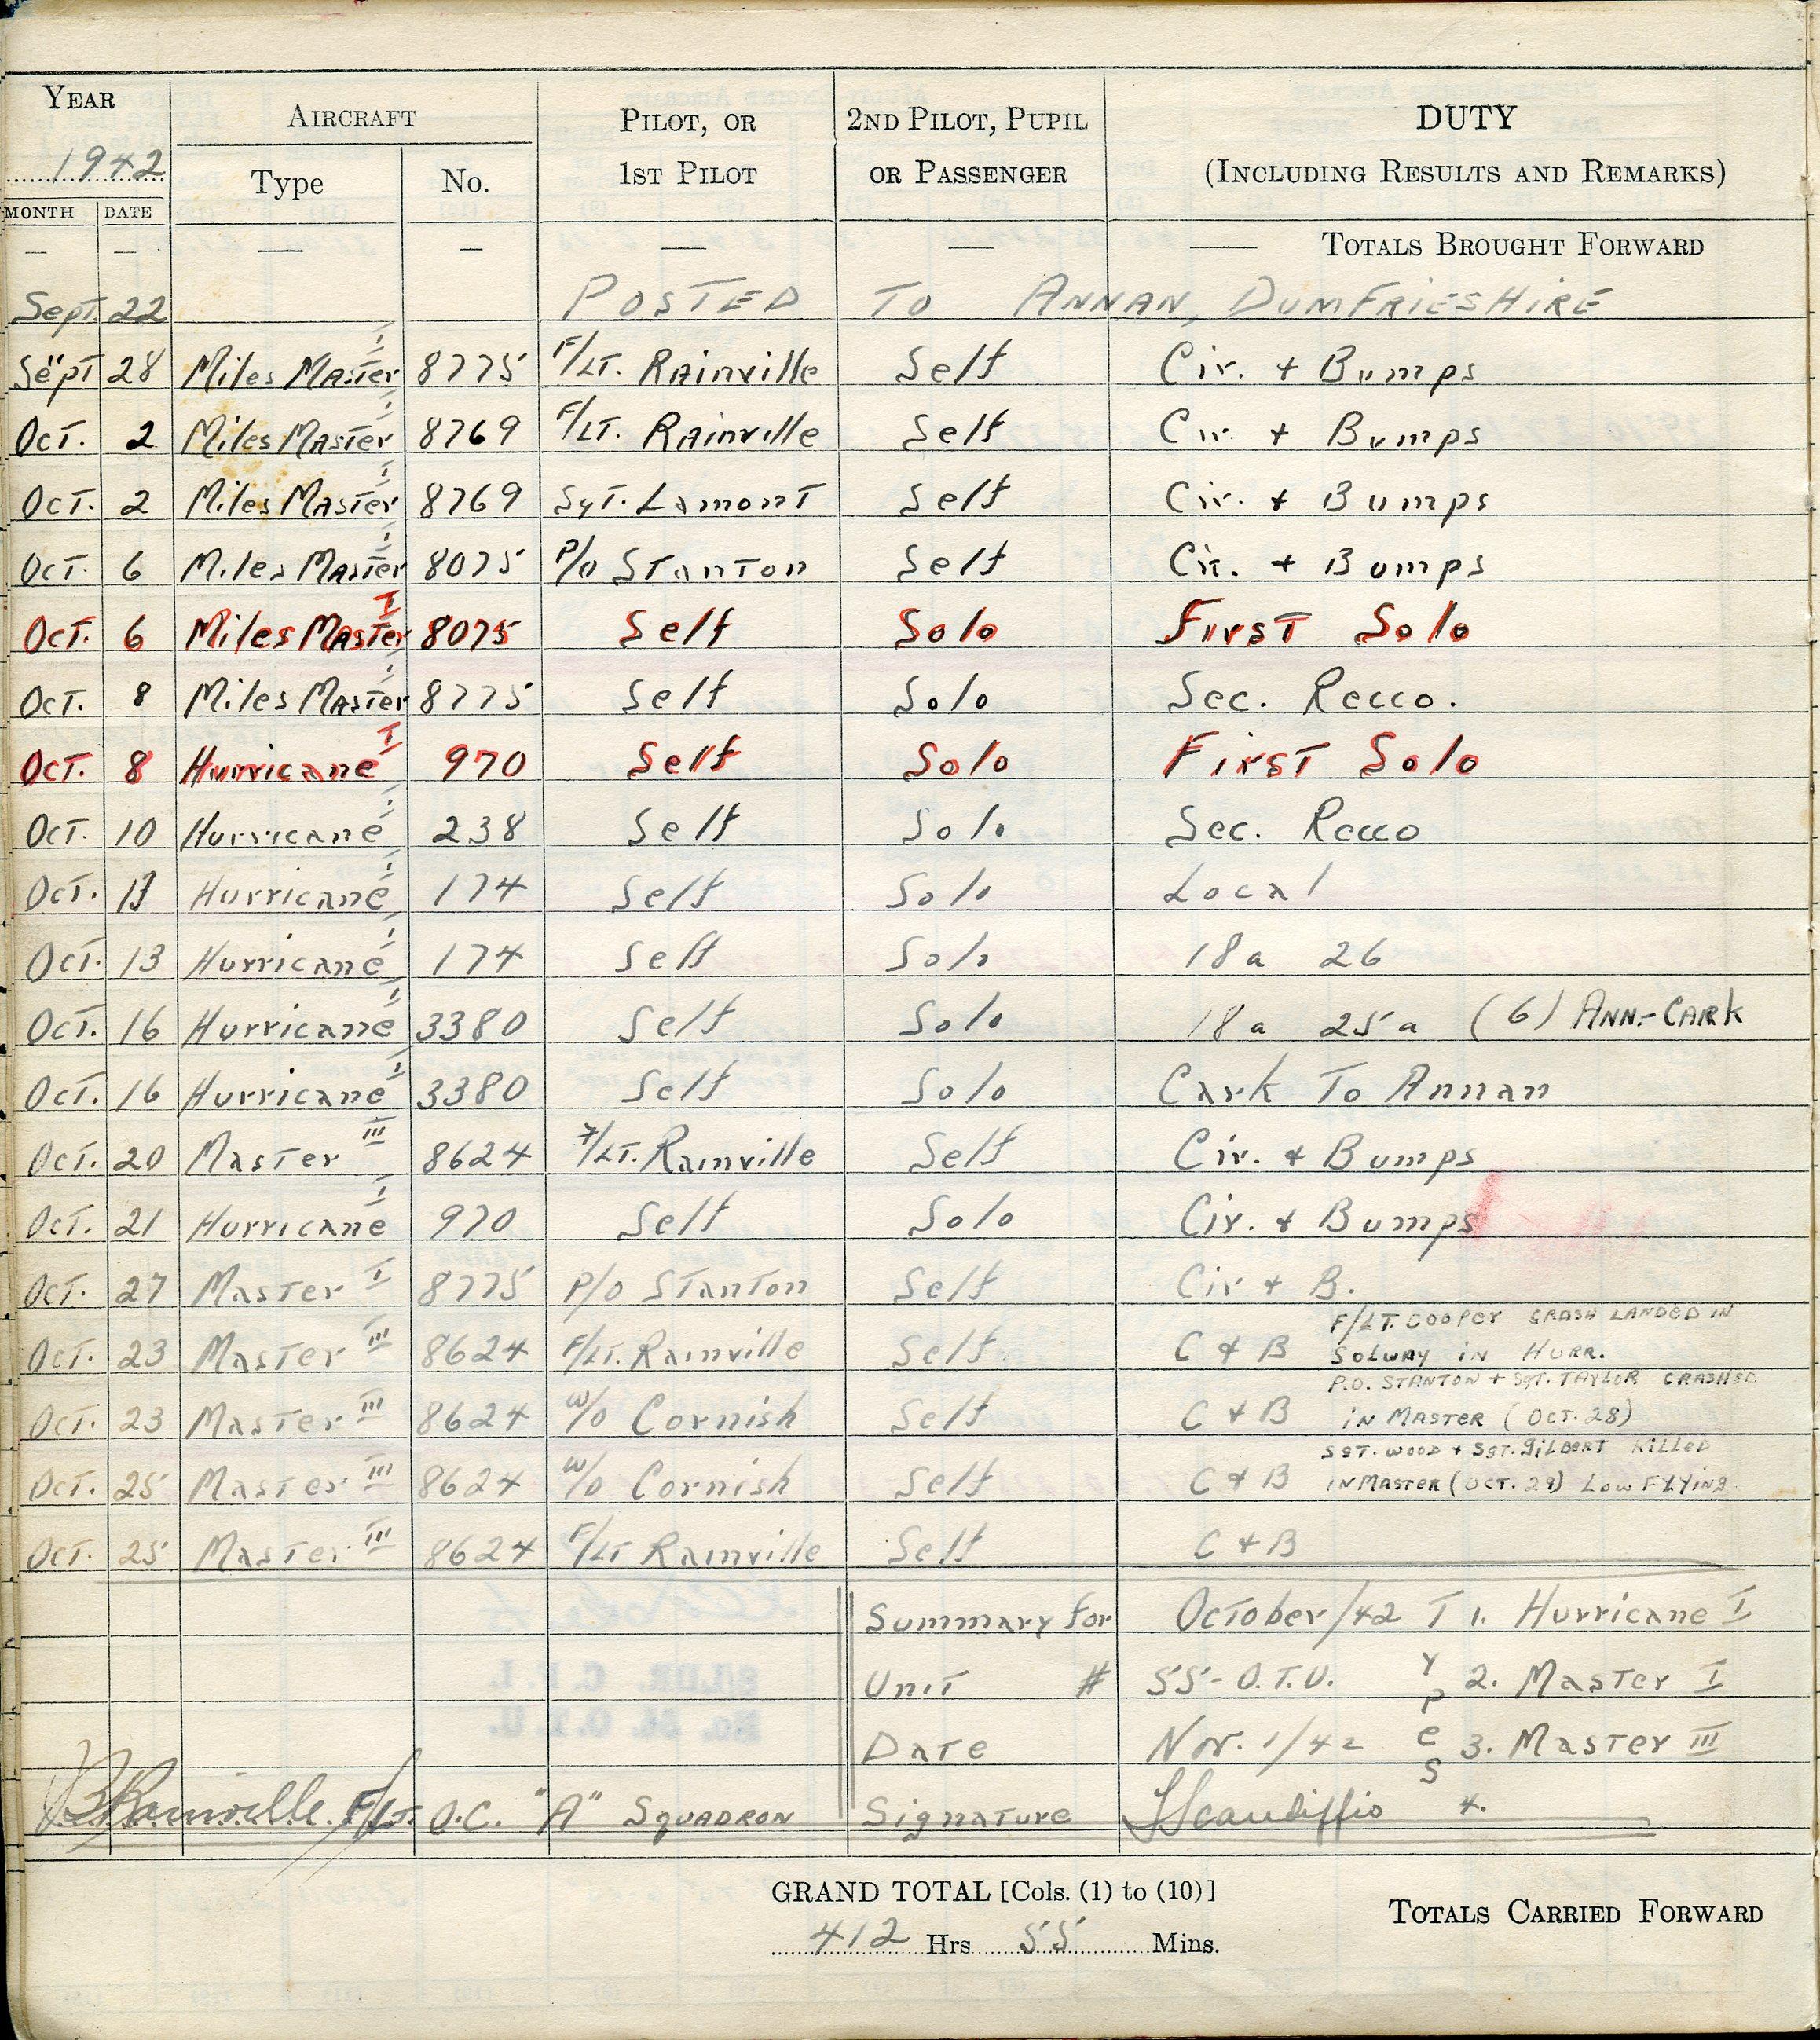 YEAR AIRCRAFT PILOT, OR 2ND PILOT, PUPIL DUTY
1942 Type No. 1ST PILOT OR PASSENGER (INCLUDING RESULTS AND REMARKS)
MONTH DATE
— — — — — — — TOTALS BROUGHT FORWARD
Sept. 22 POSTED TO ANNAN, DUMFRIESHIRE
Sept 28 Miles Master I 8775 F/LT. Rainville Self Cir. + Bumps
Oct. 2 Miles Master I 8769 F/LT. Rainville Self Cir. + Bumps
Oct. 2 Miles Master I 8769 Sgt. Lamont Self Cir. + Bumps
Oct. 6 Miles Master I 8075 P/O Stanton Self Cir. + Bumps
Oct. 6 Miles Master I 8075 Self Solo First Solo
Oct. 8 Miles Master I 8775 Self Solo Sec. Recco.
Oct. 8 Hurricane I 970 Self Solo First Solo
Oct. 10 Hurricane I 238 Self Solo Sec. Recco
Oct. Hurricane I 174 Self Solo Local
Oct. 13 Hurricane I 174 Self Solo 18a 26
Oct. 16 Hurricane I 3380 Self Solo 18a 25a (6) ANN.-CARK
Oct. 16 Hurricane I 3380 Self Solo Cark To Annan
Oct. 20 Master III 8624 F/LT. Rainville Self Cir. + Bumps
Oct. 21 Hurricane I 970 Self Solo Cir. + Bumps
Oct. 27 Master I 8775 P/O Stanton Self Cir + B.
Oct. 23 Master III 8624 F/LT. Rainville Self C + B F/LT. COOPER CRASH LANDED IN
SOLWAY IN HURR.
Oct. 23 Master III 8624 W/O Cornish Self C + B P.O. STANTON + SGT. TAYLOR CRASHED
IN MASTER (OCT. 28)
Oct. 25 Master III 8624 W/O Cornish Self C + B SGT. WOOD + SGT. GILBERT KILLED
IN MASTER (OCT. 29) LOW FLYING
Oct. 25 Master III 8624 F/LT Rainville Self C + B
Summary for October/42 Types 1. Hurricane I
Unit # 55-O.T.U. 2. Master I
Date Nov. 1/42 3. Master III
Rainville F/LT. O.C. "A" SQUADRON Signature Scandiffio 4.
GRAND TOTAL [Cols. (1) to (10)] TOTALS CARRIED FORWARD
412 Hrs 55 Mins.